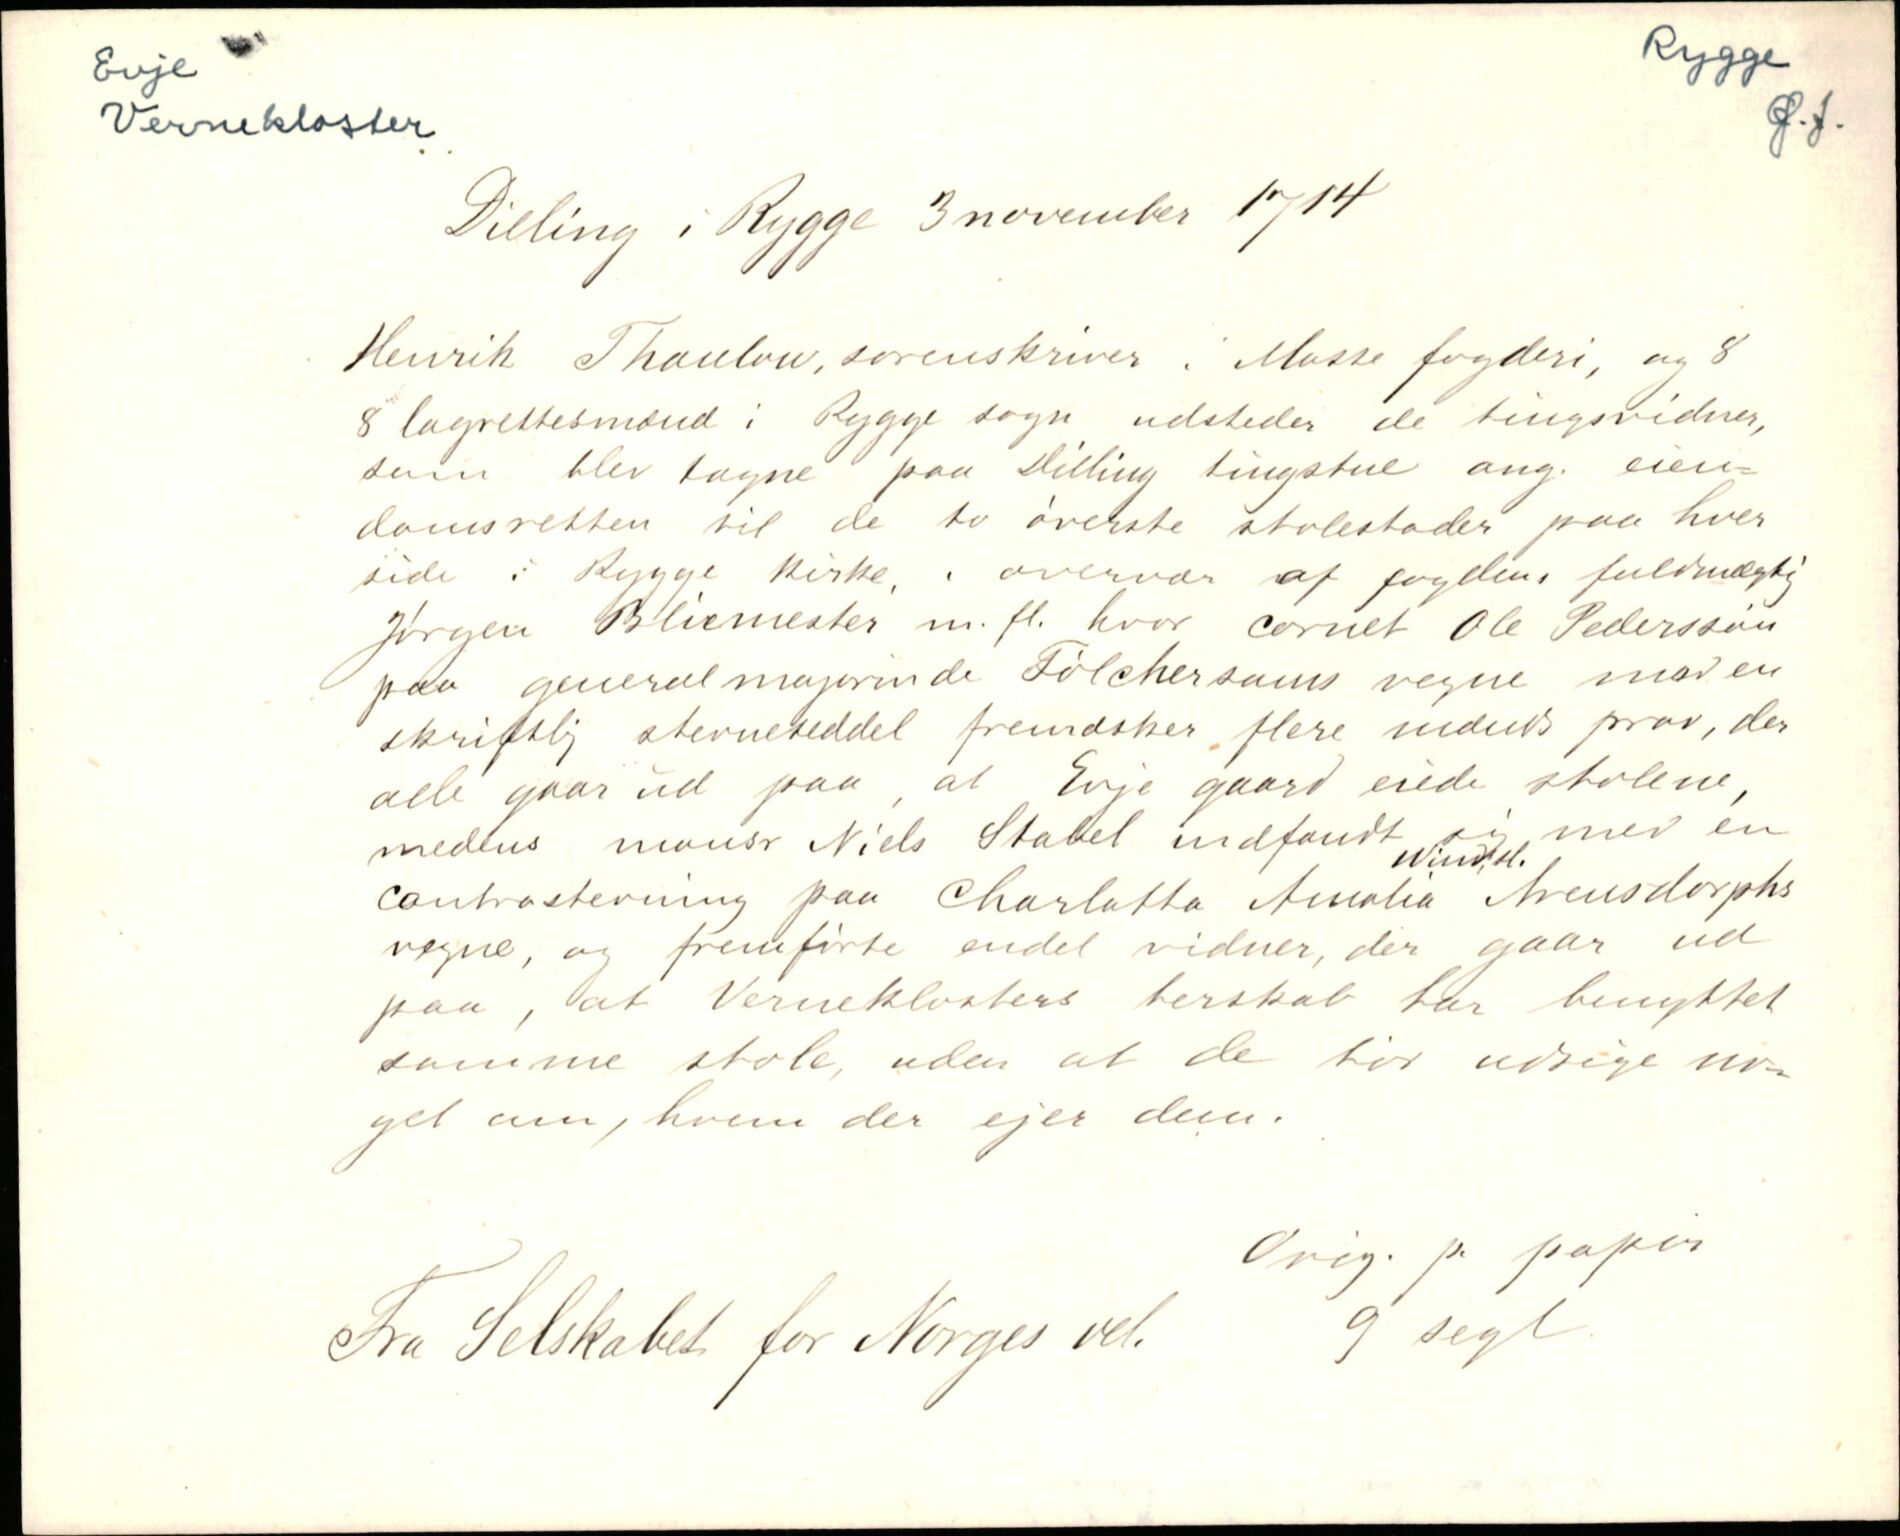 Evje
Vernekloster
Rygge
Ø.f.
Dilling i Rygge 3 november 1714
Henrik Thaulow, sorenskriver i Mosse fogderi, og 8
8 lagrettesmænd i Rygge sogn udsteder de tingsvidner,
som blev tagne paa Dilling tingstue ang. eien=
domsretten til de to øverste stolestader paa hver
side i Rygge kirke, i overvær af fogdens fuldmægtig
Jørgen Bliemester m. fl. hvor cornet Ole Pederssøn
paa generalmajorinde Følchersams vegne med en
skriftlig stevneseddel fremæsker flere mænds prov, der
alle gaar ud paa, at Evje gaard eiede stolene,
medens monsr Niels Stabel indfandt sig med en
contrastevning paa Charlotta Amalia Arensdorphs
vegne, og fremførte endel vidner, der gaar ud
paa, at Verneklosters herskab har benyttet
samme stole, uden at de tør udsige no=
get om, hvem der ejer dem.
Orig. p. papir
Fra Selskabet for Norges vel. 9 segl